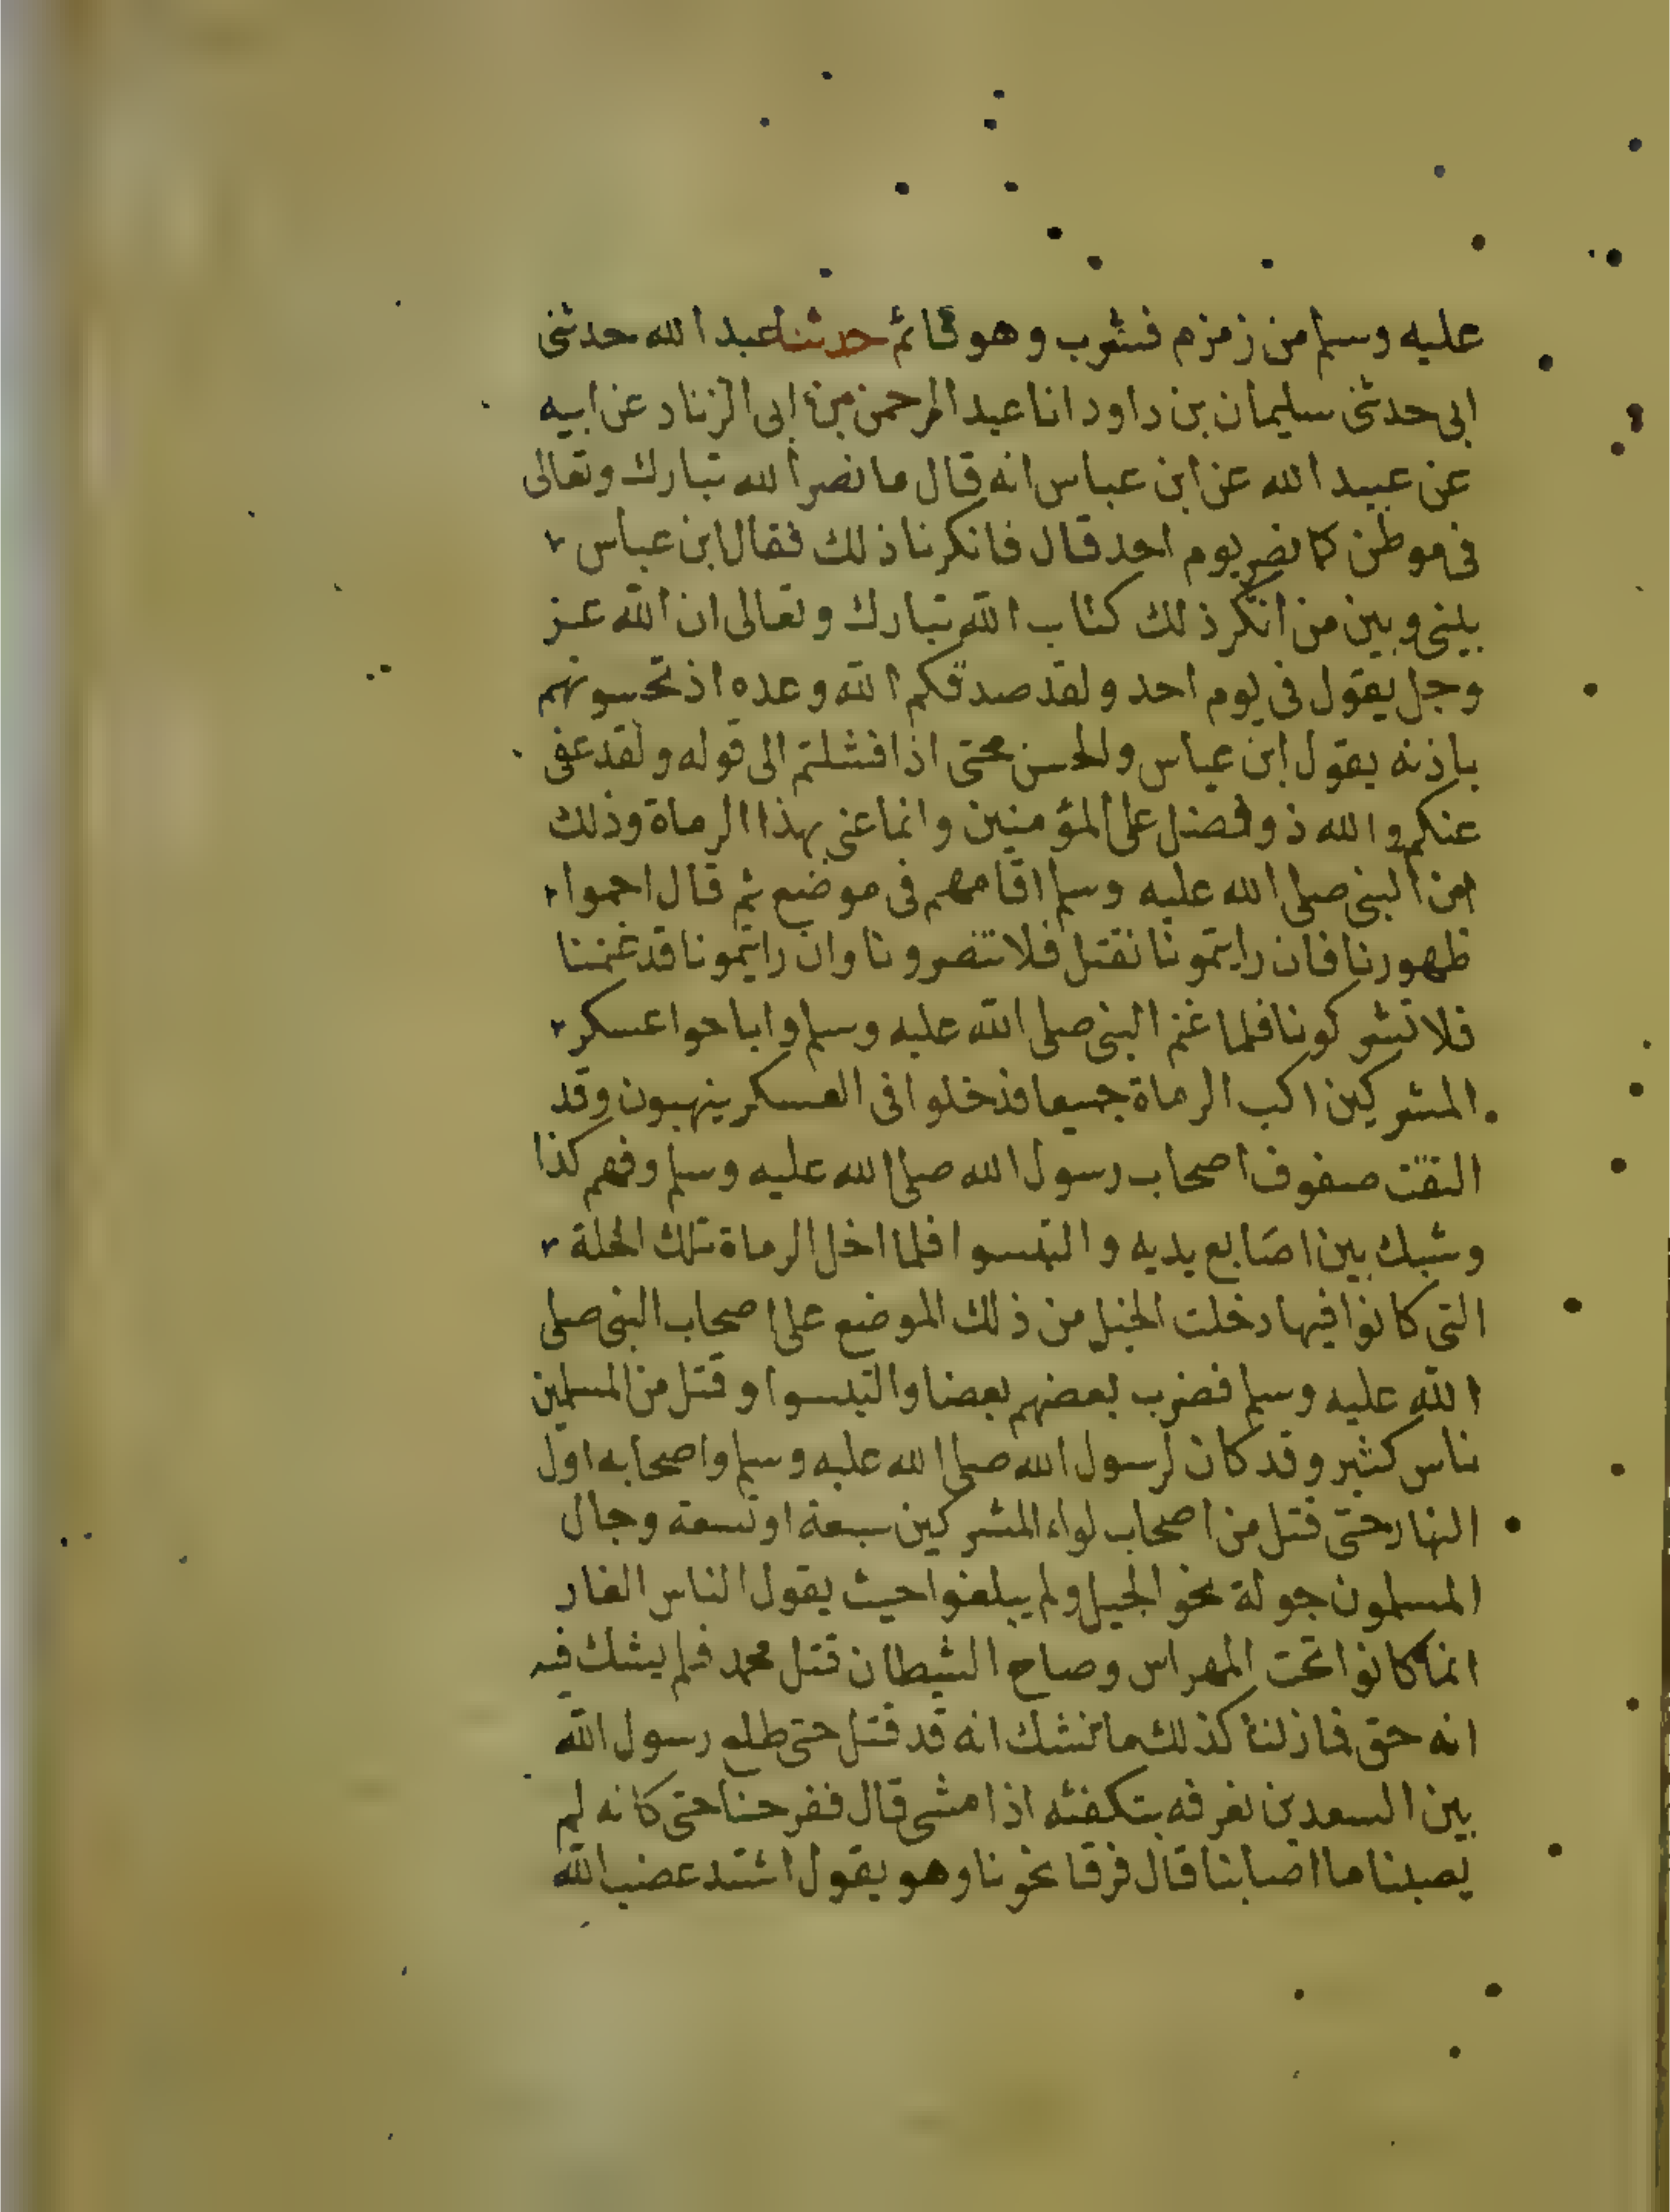 عليه وسلم من زمزم فشرب وهو قائم حدثنا عبد الله حدثنى
ابى حدثنى سليمان بن داود انا عبد الرحمن بن ابى الزناد عن ابيه
عن عبيد الله عن ابن عباس انه قال ما نصر الله تبارك وتعالى
فى موطن كما نصر يوم احد قال فانكرنا ذلك فقال ابن عباس
بينى وبين من انكر ذلك كتاب الله تبارك وتعالى ان الله عز
وجل يقول فى يوم احد ولقد صدقكم الله وعده اذ تحسونهم
باذنه يقول ابن عباس والحسن حتى اذا فشلتم الى قوله ولقد عفى
عنكم والله ذو فضل على المؤمنين وانما عنى بهذا الرماة وذلك
ان النبى صلى الله عليه وسلم اقامهم فى موضع ثم قال احموا
ظهورنا فان رايتمونا نقتل فلا تنصرونا وان رايتمونا قد غنمنا
فلا تشركونا فلما غنم النبى صلى الله عليه وسلم واباحوا عسكر
المشركين اكب الرماة جميعا فدخلوا فى العسكر ينهبون وقد
التقت صفوف اصحاب رسول الله صلى الله عليه وسلم وفهم كذا
وشبك بين اصابع يديه والتبسوا فلما اخل الرماة تلك الخلة
التى كانوا فيها دخلت الخيل من ذلك الموضع على اصحاب النبى صلى
الله عليه وسلم فضرب بعضهم بعضا والتبسوا وقتل من المسلمين
ناس كثير وقد كان لرسول الله صلى الله عليه وسلم واصحابه اول
النهار حتى قتل من اصحاب لواء المشركين سبعة او تسعة وجال
المسلمون جولة نحو الجبل ولم يبلغوا حيث يقول الناس الغار
انما كانوا تحت المهراس وصاح الشيطان قتل محمد فلم يشك فيه
انه حق فما زلنا كذلك ما نشك انه قد قتل حتى طلع رسول الله
بين السعدين نعرفه بتكفئه اذا مشى قال ففرحنا حتى كانه لم
يصبنا ما اصابنا قال فرقا نحونا وهو يقول اشتد غضب الله